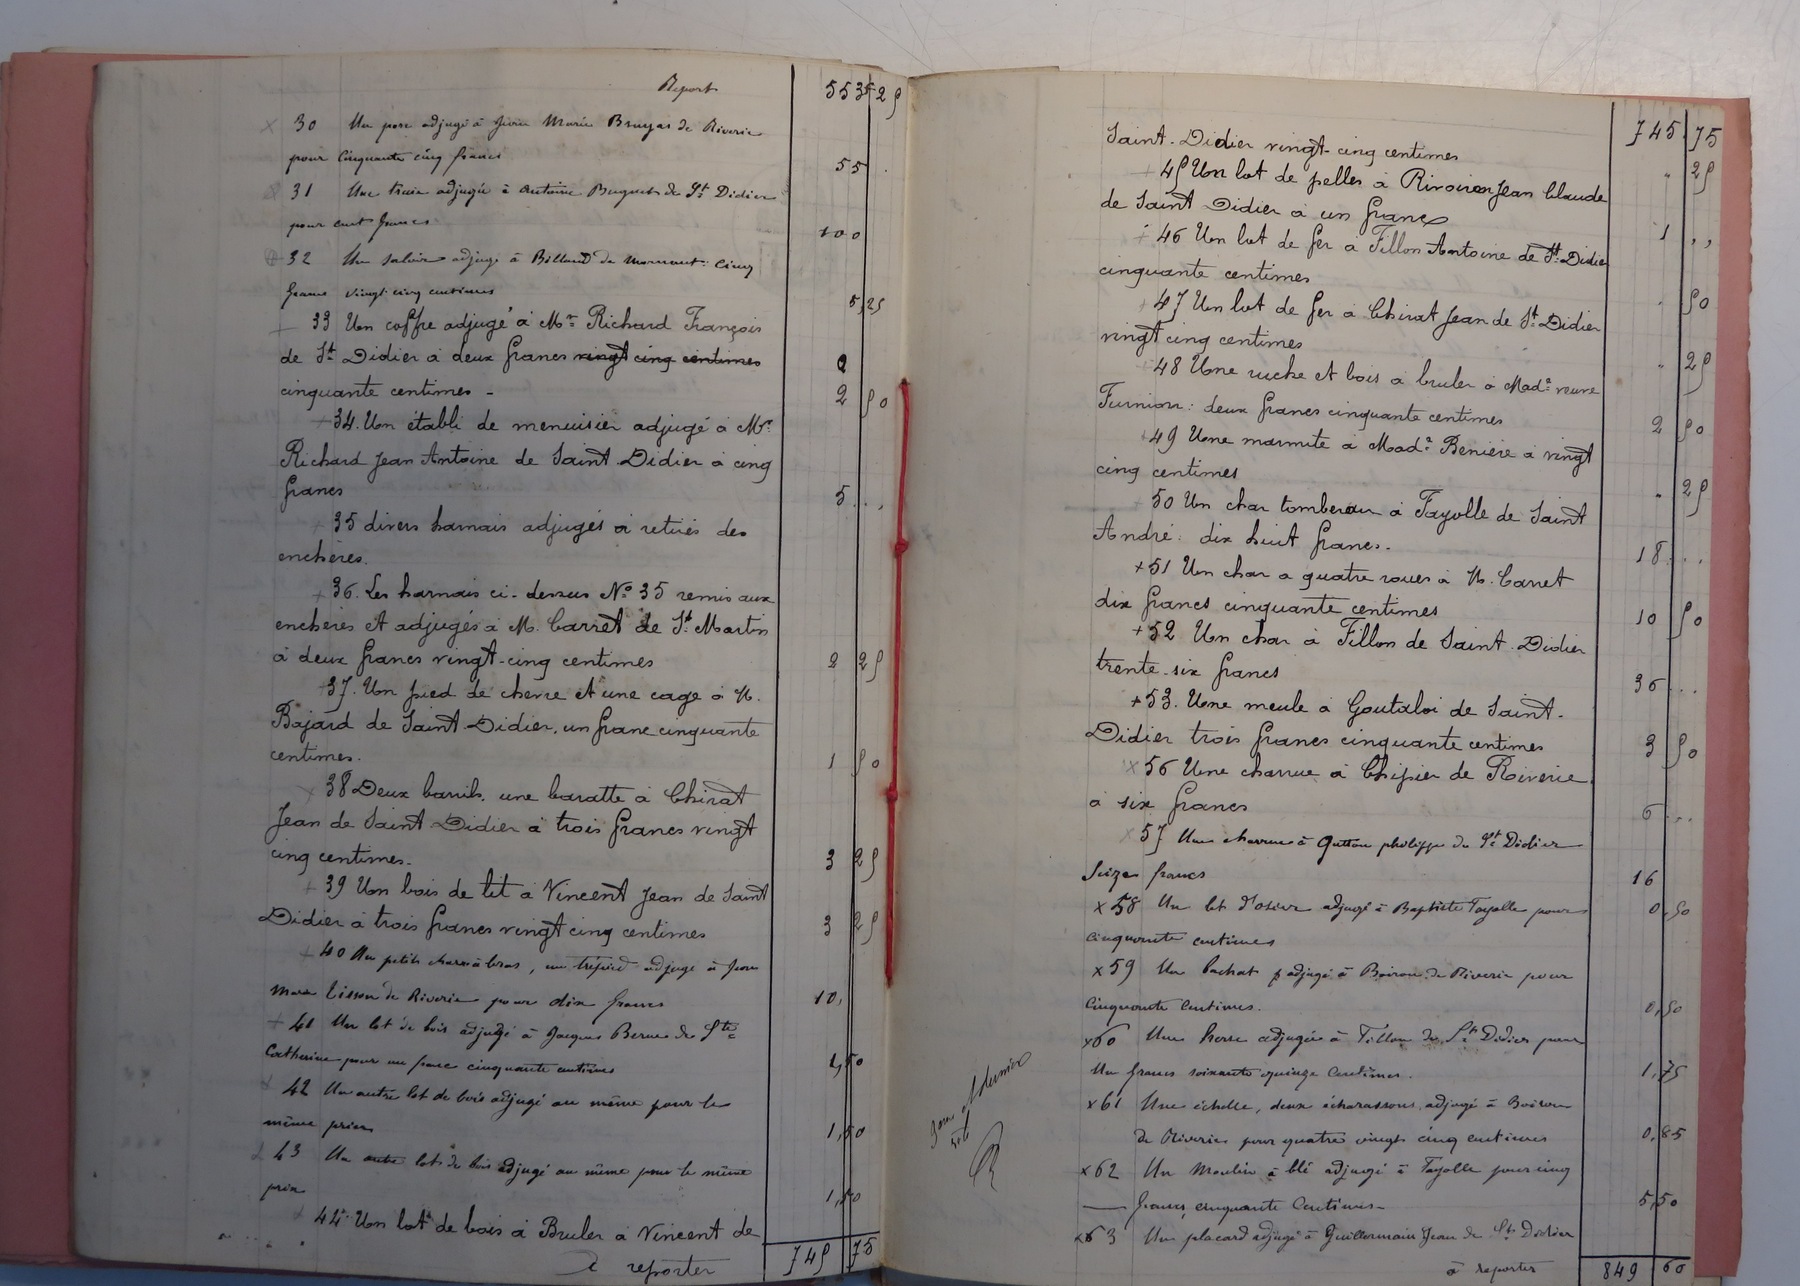 Report 553 25
30 Un porc adjugé à Jean Marie Bruyas de Riverie
pour cinquante cinq francs 55
31 Une truie adjugée à Antoine Buguet de St Didier
pour cent francs 100
32 Un saloir adjugé à Billaud de Mornant: cinq
francs vingt cinq centimes 5,25
33 Un coffre adjugé à Mr Richard François
de St Didier à deux francs vingt cinq centimes 2
cinquante centimes - 2 50
34. Un établi de menuisier adjugé à Mr
Richard Jean Antoine de Saint Didier à cinq
francs 5 . . .
35 divers harnais adjugés et retirés des
enchères.
36. Les harnais ci-dessus No 35 remis aux
enchères et adjugés à M. Carret de St Martin
à deux francs vingt-cinq centimes 2 25
37. Un pied de chevre et une cage à M.
Bajard de Saint-Didier, un franc cinquante
centimes. 1 50
38 Deux barils, une baratte à Chirat
Jean de Saint Didier à trois francs vingt
cinq centimes. 3 25
39 Un bois de lit à Vincent Jean de Saint
Didier à trois francs vingt cinq centimes 3 25
40 Un petit char à bras, un trépied adjugé à Jean
Marie de Riverie pour dix francs 10,
41 Un lot de bois adjugé à Jacques Berne de Ste
Catherine pour un franc cinquante centimes 1,50
42 Un autre lot de bois adjugé au même pour le
même prix 1,50
43 Un autre lot de bois adjugé au même pour le même
prix 1,50
44. Un lot de bois à Bruler à Vincent de
à reporter 745 75
745 75
Saint-Didier vingt-cinq centimes " 25
45 Un lot de pelles à Rivoiron Jean Claude
de Saint Didier à un franc 1 , ,
46 Un lot de fer à Fillon Antoine de St Didier
cinquante centimes " 50
47 Un lot de fer à Chirat Jean de St Didier
vingt cinq centimes " 25
48 Une ruche et bois à bruler à Made veuve
Furnion: deux francs cinquante centimes 2 50
49 Une marmite à Made Benière à vingt
cinq centimes " 25
50 Un char tombereau à Fayolle de Saint
André: dix huit francs. 18 . . .
+51 Un char a quatre roues à M. Carret
dix francs cinquante centimes 10 50
+52 Un char à Fillon de Saint-Didier
trente-six francs 36 . . .
+53. Une meule à Goutaloi de Saint-
Didier trois francs cinquante centimes 3 50
x 56 Une charrue à Chipier de Riverie
à six francs 6 . . .
x 57 Une charrue à Gutton philippe de St Didier
Seize francs 16
x 58 Un lot d'osier adjugé à Baptiste Fayolle pour
cinquante centimes 0,50
x 59 Un bachat adjugé à Boiron de Riverie pour
cinquante centimes. 0,50
x60 Une herse adjugée à Fillon de St Didier pour
Un francs soixante quinze centimes. 1,75
x 61 Une échelle, deux écharassons adjugé à Boiron
de Riverie pour quatre vingt cinq centimes 0,85
x 62 Un Moulin à blé adjugé à Fayolle pour cinq
francs cinquante Centimes- 5,50
x63 Un placard adjugé à Guillermain Jean de St Didier
à reporter 849 60